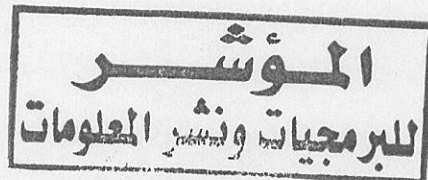 المؤشر
للبرمجيات ونشر المعلومات